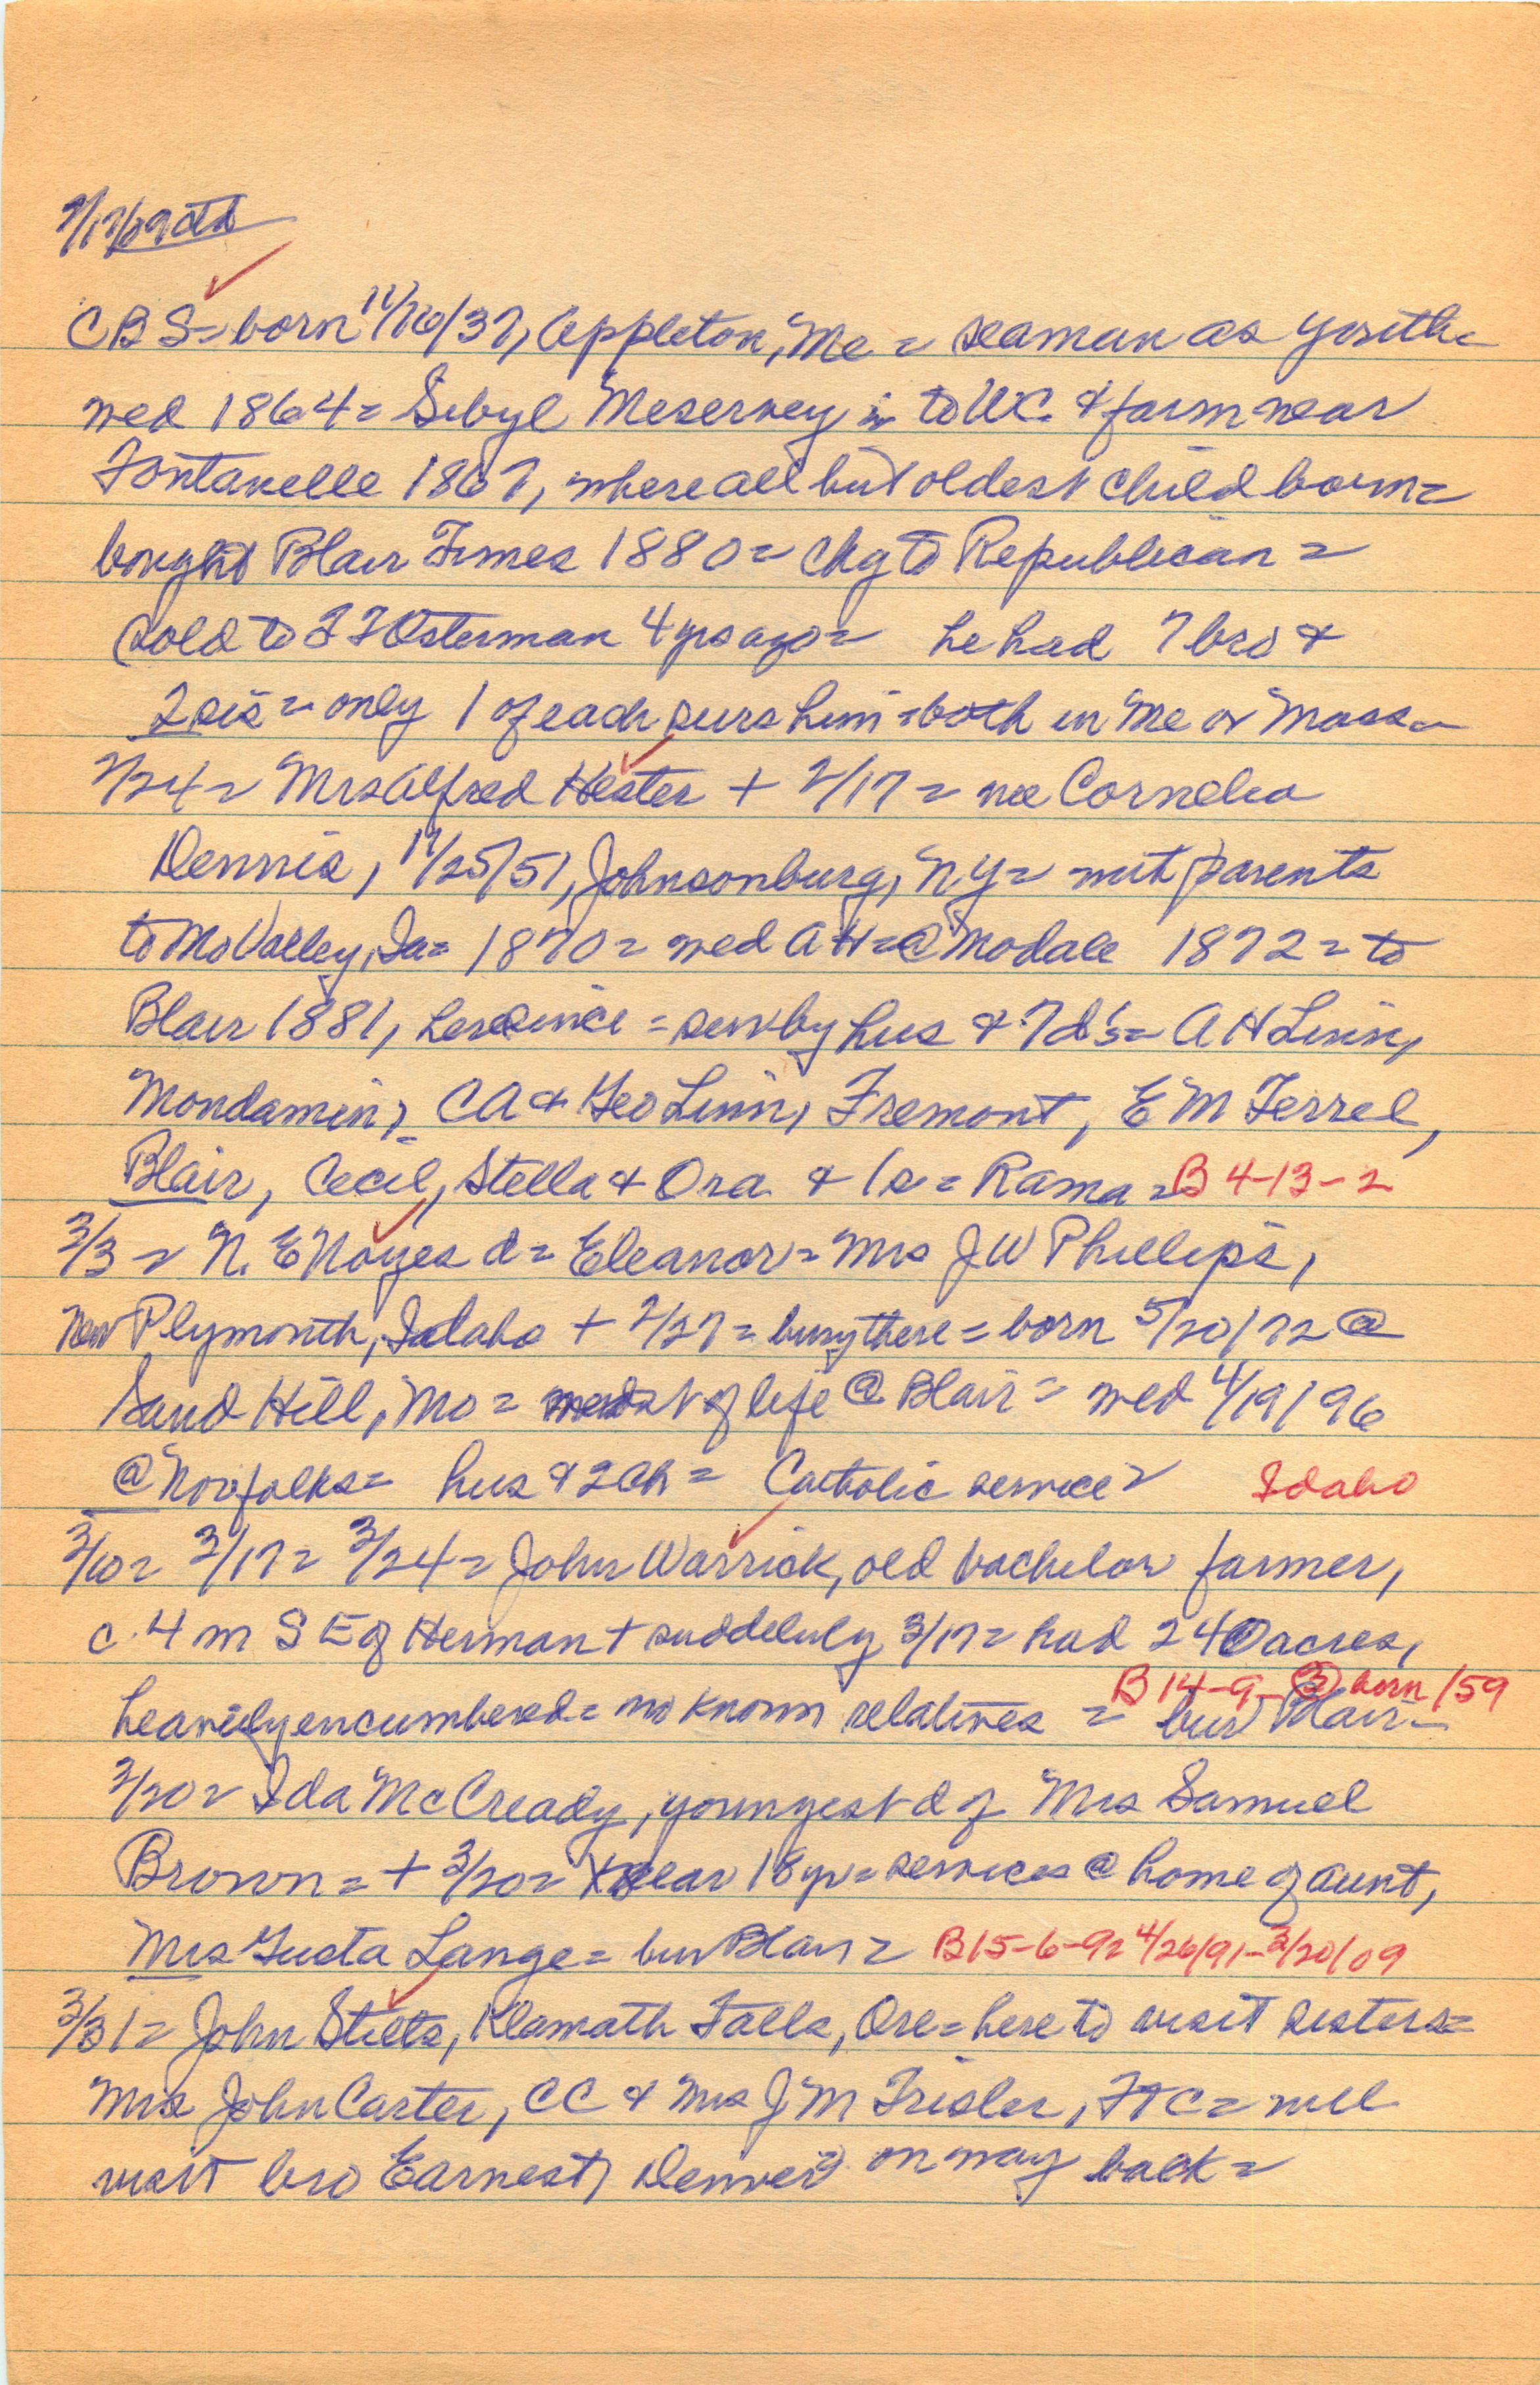 2/17/09 ctd
CBS = born 11/16/37, Appleton, Me = seaman as youth =
wed 1864 = Sibyl Meservey = to WC & farm near
Fontanelle 1867, where all but oldest child born =
bought Blair Times 1880 = chg to Republican =
(sold to F F Osterman 4 yrs ago = he had 7 bro &
2 sis = only 1 of each surv him = both in Me or Mass =
2/24 = Mrs Alfred Hester + 2/17 = nee Cornelia
Dennis, 11/25/51, Johnsonburg, NY = wit parents
to Mo Valley, Ia = 1870 = wed AH = @ Modale 1872 = to
Blair 1881, here since = surv by hus & 7 d's = A H Linn,
Mondamin, CA & Geo Linn, Fremont, E M Ferrel,
Blair, Cecil, Stella & Ora & 1 s = Rama = B 4-13-2
3/3 = N. E Noyes d = Eleanor = Mrs J W Phillips,
New Plymouth, Idaho + 2/27 = bury there = born 5/20/72 @
Sand Hill, Mo = most of life @ Blair = wed 4/19/96
@ Norfolks = hus & 2 ch = Catholic service = Idaho
3/10 = 3/17 = 3/24 = John Warrick, old bachelor farmer,
c. 4 m S E of Herman + suddeluly 3/17 = had 240 acres,
heavily encumbered = no known relatives = bur Blair = B 14-9-3 born /59
3/20 = Ida McCready, youngest d of Mrs Samuel
Brown = + 3/20 = near 18 yr = services @ home of aunt,
Mrs Gusta Lange = bur Blair = B15-6-9 = 4/26/91-3/20/09
3/31 = John Stilts, Klamath Falls, Ore = here to visit sisters =
Mrs John Carter, CC & Mrs J M Trisler, FTC = will
visit bro Earnest, Denver on way back =